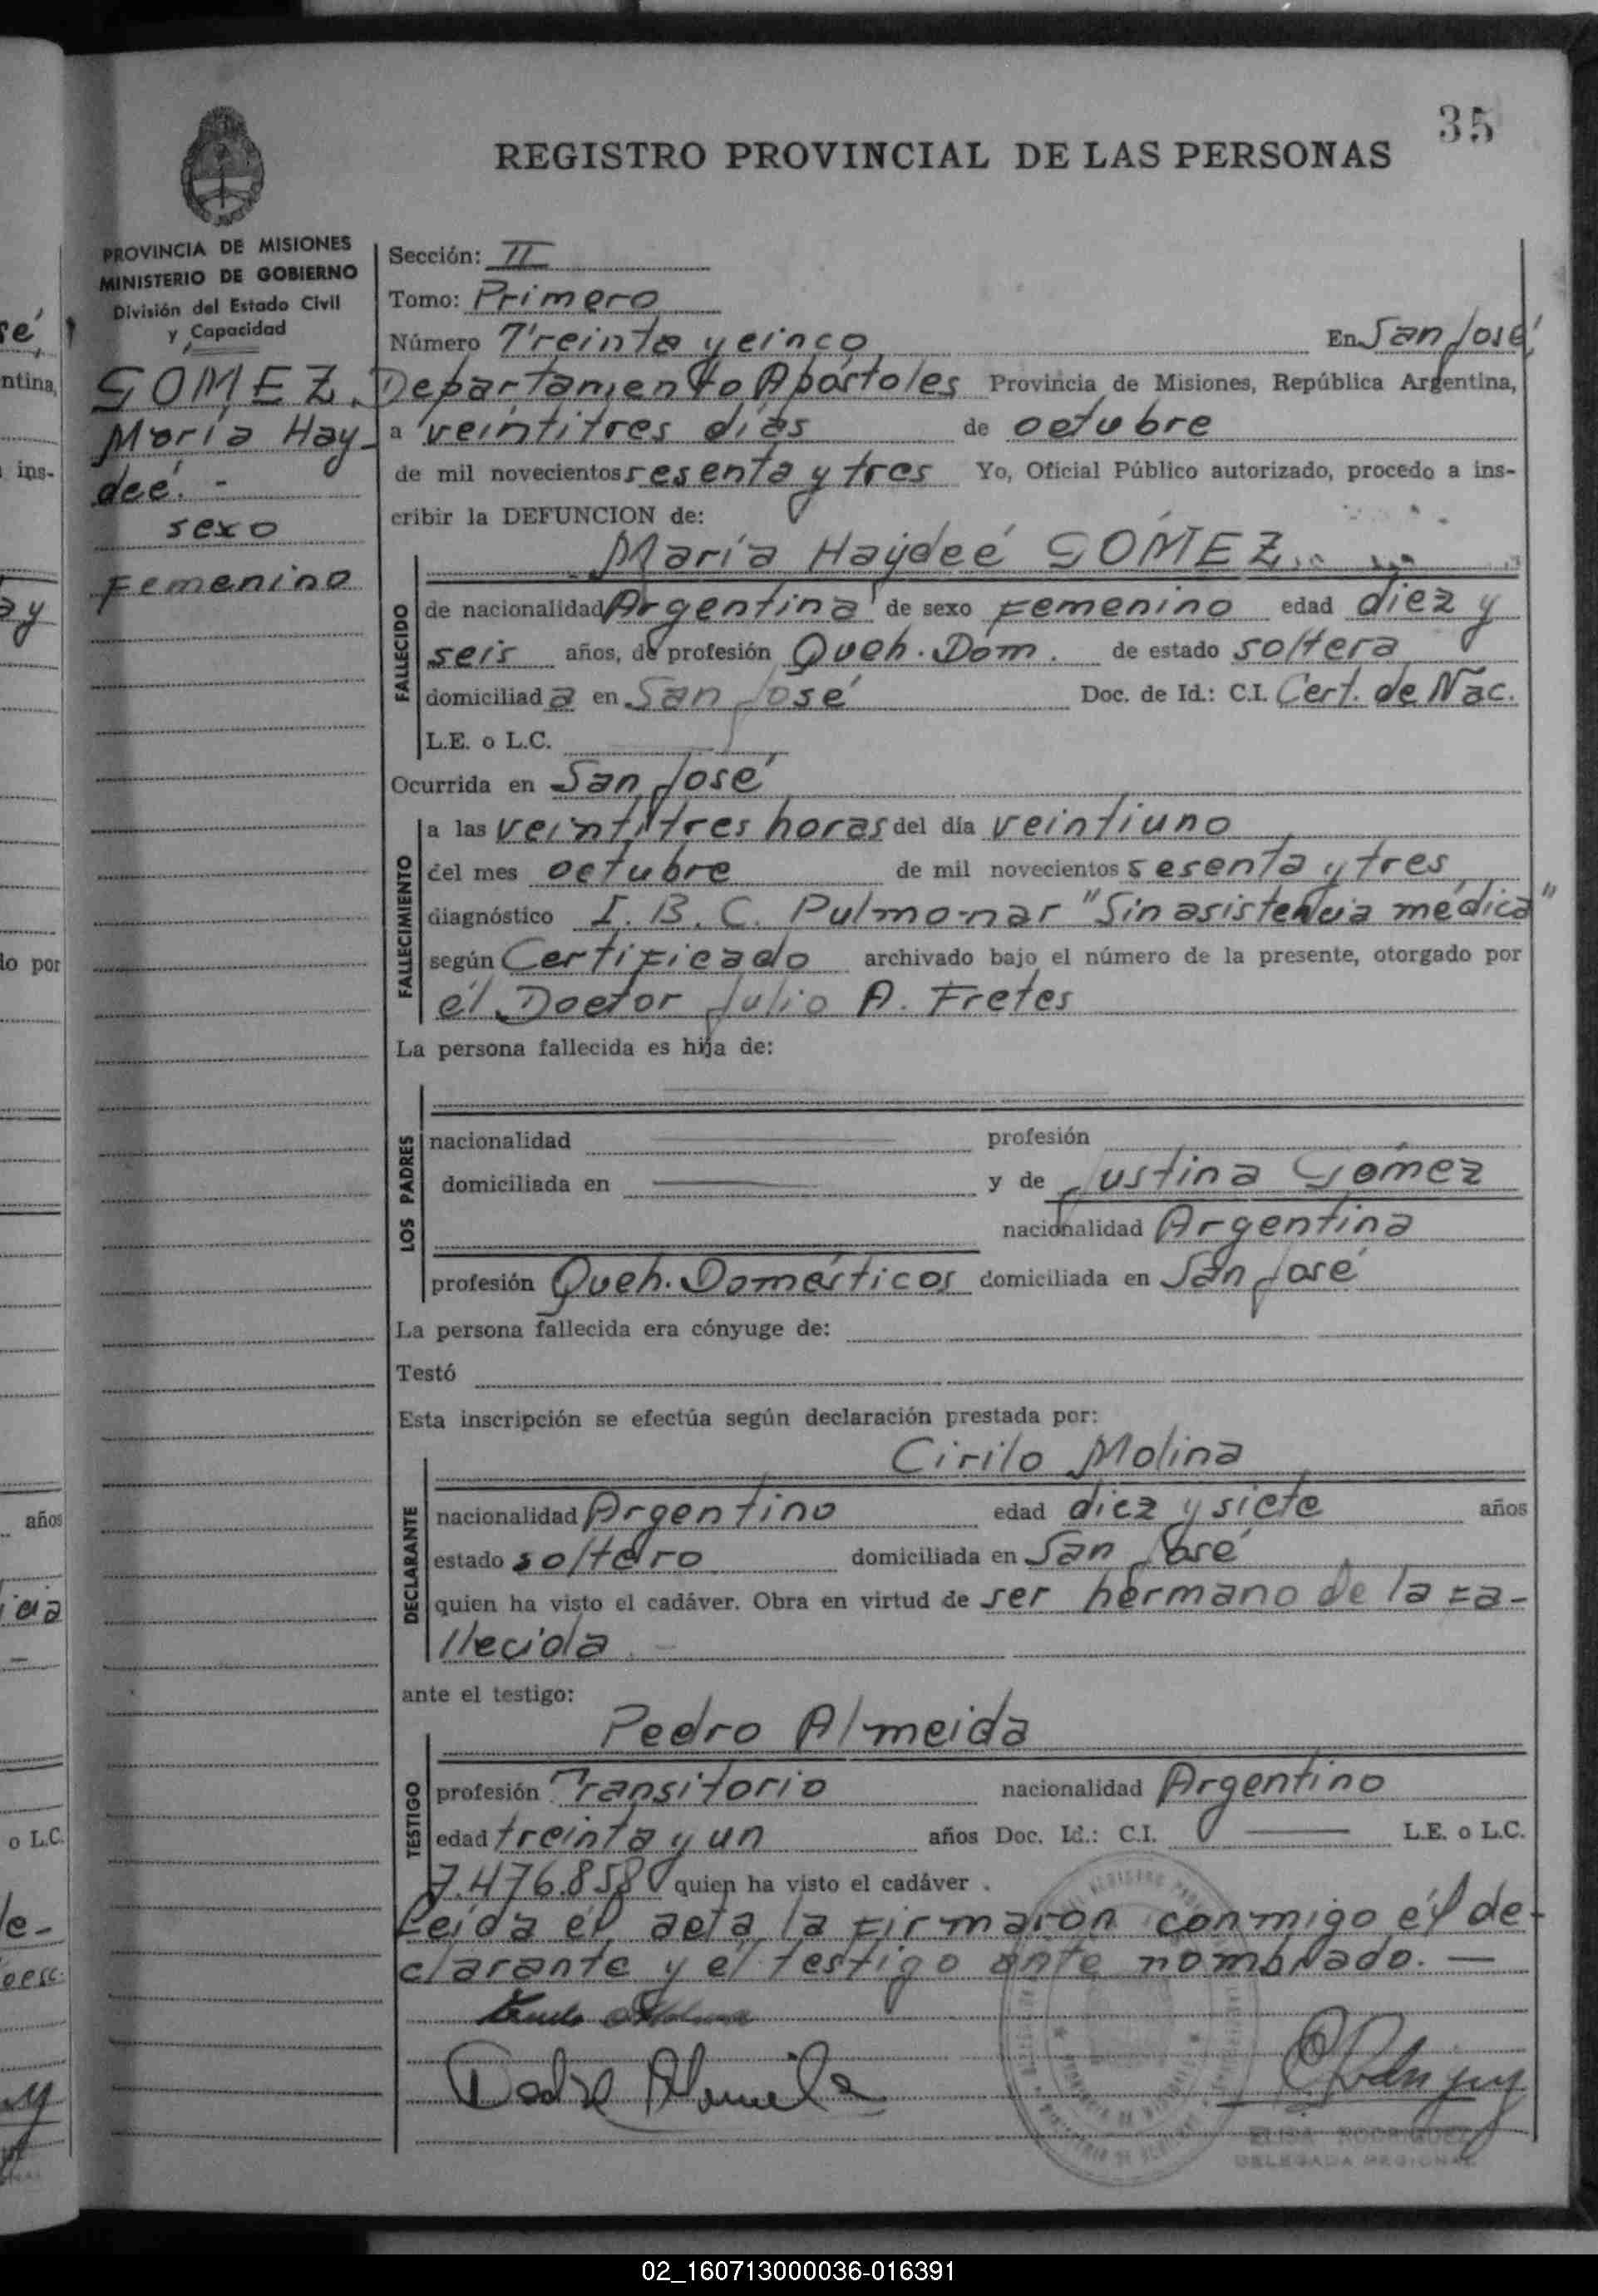 35
REGISTRO PROVINCIAL DE LAS PERSONAS
PROVINCIA DE MISIONES
MINISTERIO DE GOBIERNO
División del Estado Civil
y Capacidad
GOMEZ,
María Hay-
deé. -
sexo
Femenino
Sección: II
Tomo: Primero
Número Treinta y cinco En San José,
Departamento Apóstoles Provincia de Misiones, República Argentina,
a veintitres días de octubre
de mil novecientos sesenta y tres Yo, Oficial Público autorizado, procedo a ins-
cribir la DEFUNCION de:
María Haydeé GÓMEZ
FALLECIDO
de nacionalidad Argentina de sexo Femenino edad diez y
seis años, de profesión Queh. Dom. de estado soltera
domiciliada en San José Doc. de Id.: C.I. Cert. de Nac.
L.E. o L.C.
Ocurrida en San José
FALLECIMIENTO
a las veintitres horas del día veintiuno
del mes octubre de mil novecientos sesenta y tres
diagnóstico I. B. C. Pulmonar "Sin asistencia médica"
según Certificado archivado bajo el número de la presente, otorgado por
él Doctor Julio A. Fretes
La persona fallecida es hija de:
LOS PADRES
nacionalidad profesión
domiciliada en y de Justina Gómez
nacionalidad Argentina
profesión Queh. Domésticos domiciliada en San José
La persona fallecida era cónyuge de:
Testó
Esta inscripción se efectúa según declaración prestada por:
Cirilo Molina
DECLARANTE
nacionalidad Argentino edad diez y siete años
estado soltero domiciliada en San José
quien ha visto el cadáver. Obra en virtud de ser hermano de la fa-
llecida. -
ante el testigo:
Pedro Almeida
TESTIGO
profesión Transitorio nacionalidad Argentino
edad treinta y un años Doc. Id.: C.I. — L.E. o L.C.
7.476.858 quien ha visto el cadáver.
Leída él acta, la firmaron conmigo él de-
clarante y él testigo ante nombrado. —
Pedro Almeida
ELISA RODRIGUEZ
DELEGADA REGIONAL
02_160713000036-016391